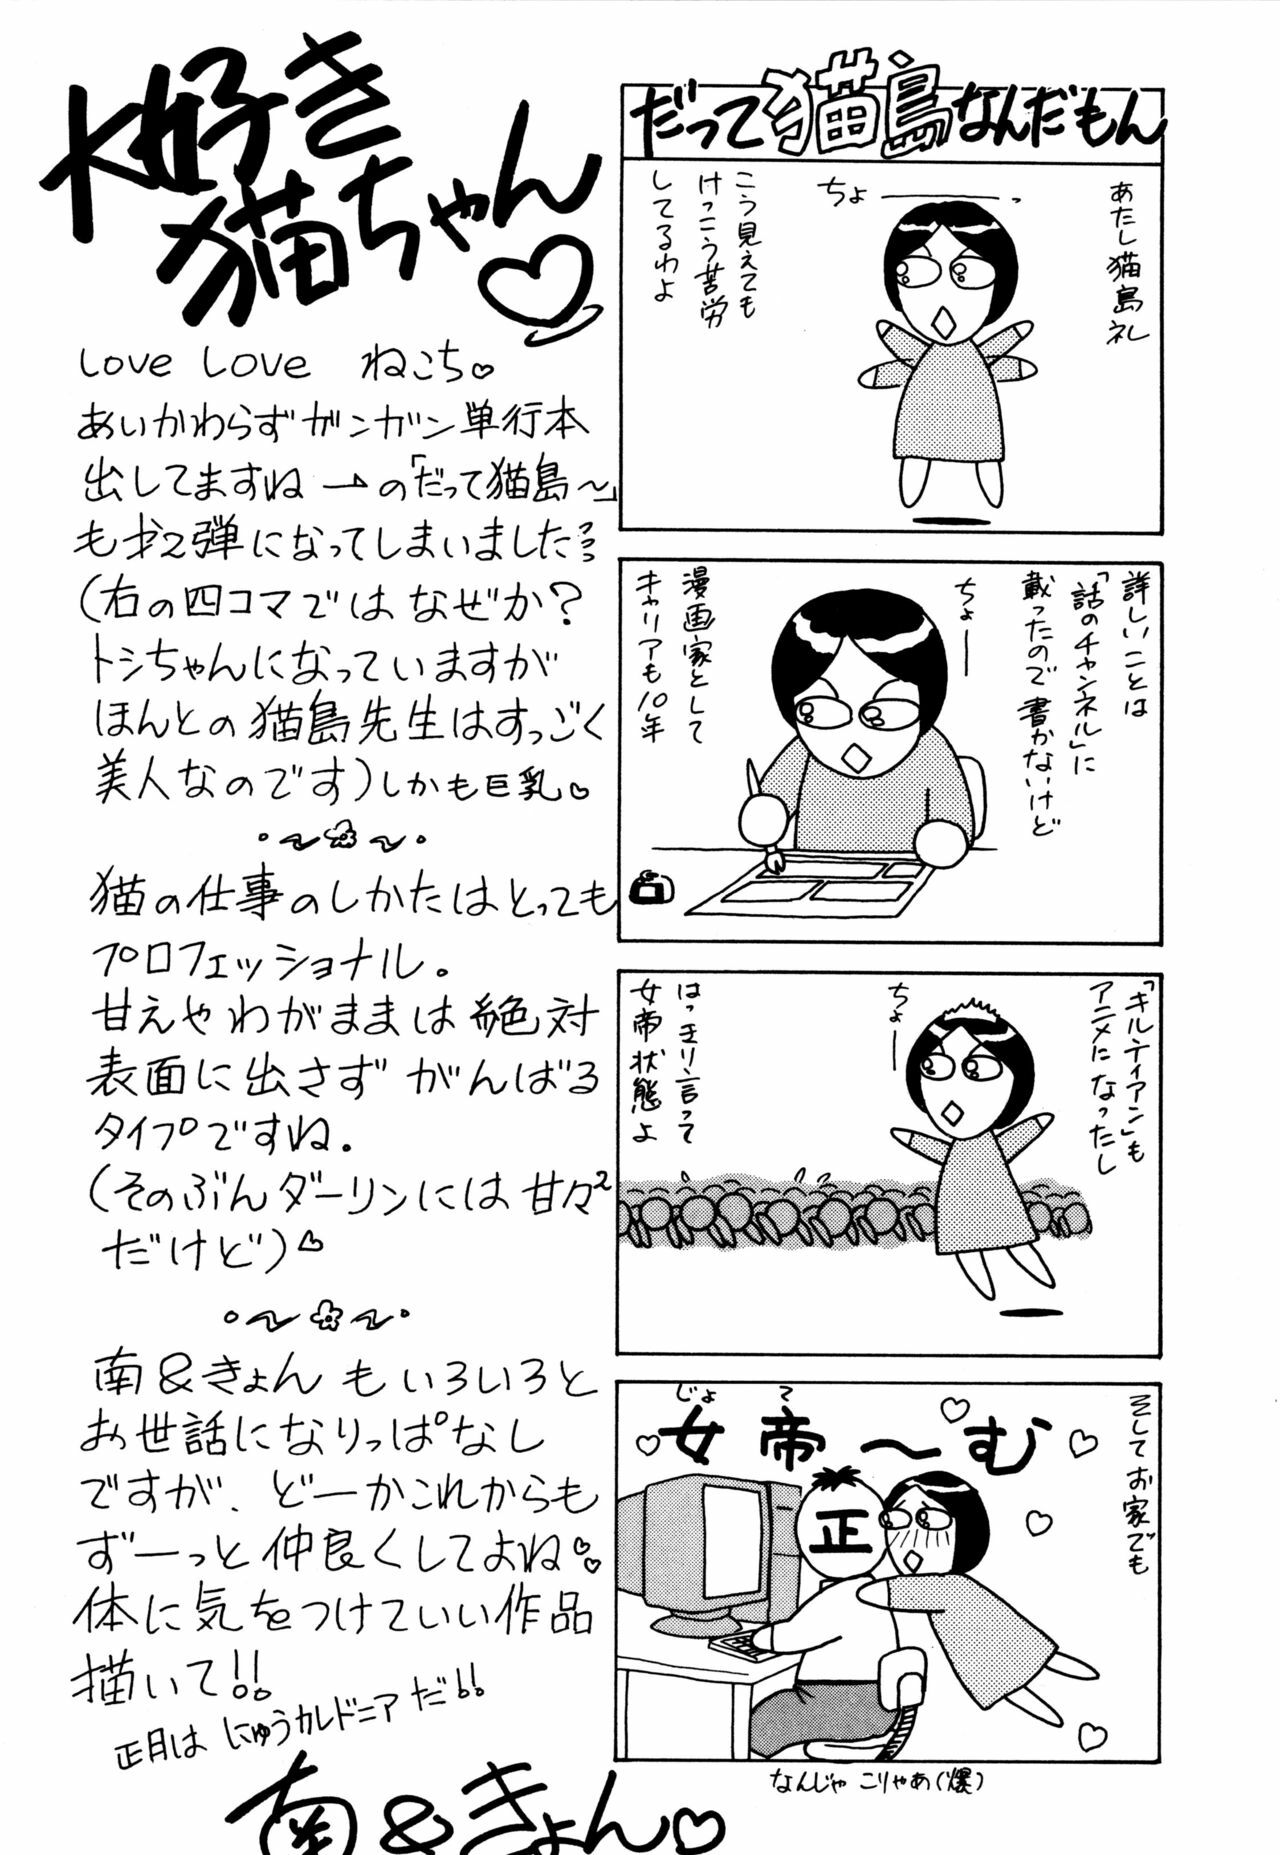 大好き
猫ちゃん♡
LOVE LOVE ねこち♡
あいかわらずガンガン単行本
出してますね→の「だって猫島〜」
も才2弾になってしまいました
(右の四コマではなぜか?
トシちゃんになっていますが
ほんとの猫島先生はすっごく
美人なのです)しかも巨乳♡
猫の仕事のしかたはとっても
プロフェッショナル。
甘えやわがままは絶対
表面に出さずがんばる
タイプですね。
(そのぶんダーリンには甘々²
だけど)♡
南&きょんもいろいろと
お世話になりっぱなし
ですが、どーかこれからも
ずーっと仲良くしてよね♡
体に気をつけていい作品
描いて!!
正月はにゅうカレドニアだ!!
南&きょん♡
だって猫島なんだもん
あたし猫島礼
ちょーっ
こう見えても
けっこう苦労
してるわよ
詳しいことは
「話のチャンネル」に
載ったので書かないけど
ちょー
漫画家として
キャリアも10年
「キルティアン」も
アニメになったし
ちょー
はっきり言って
女帝状態よ
そしてお家でも
じょ て
女帝〜む
正
なんじゃこりゃあ(爆)